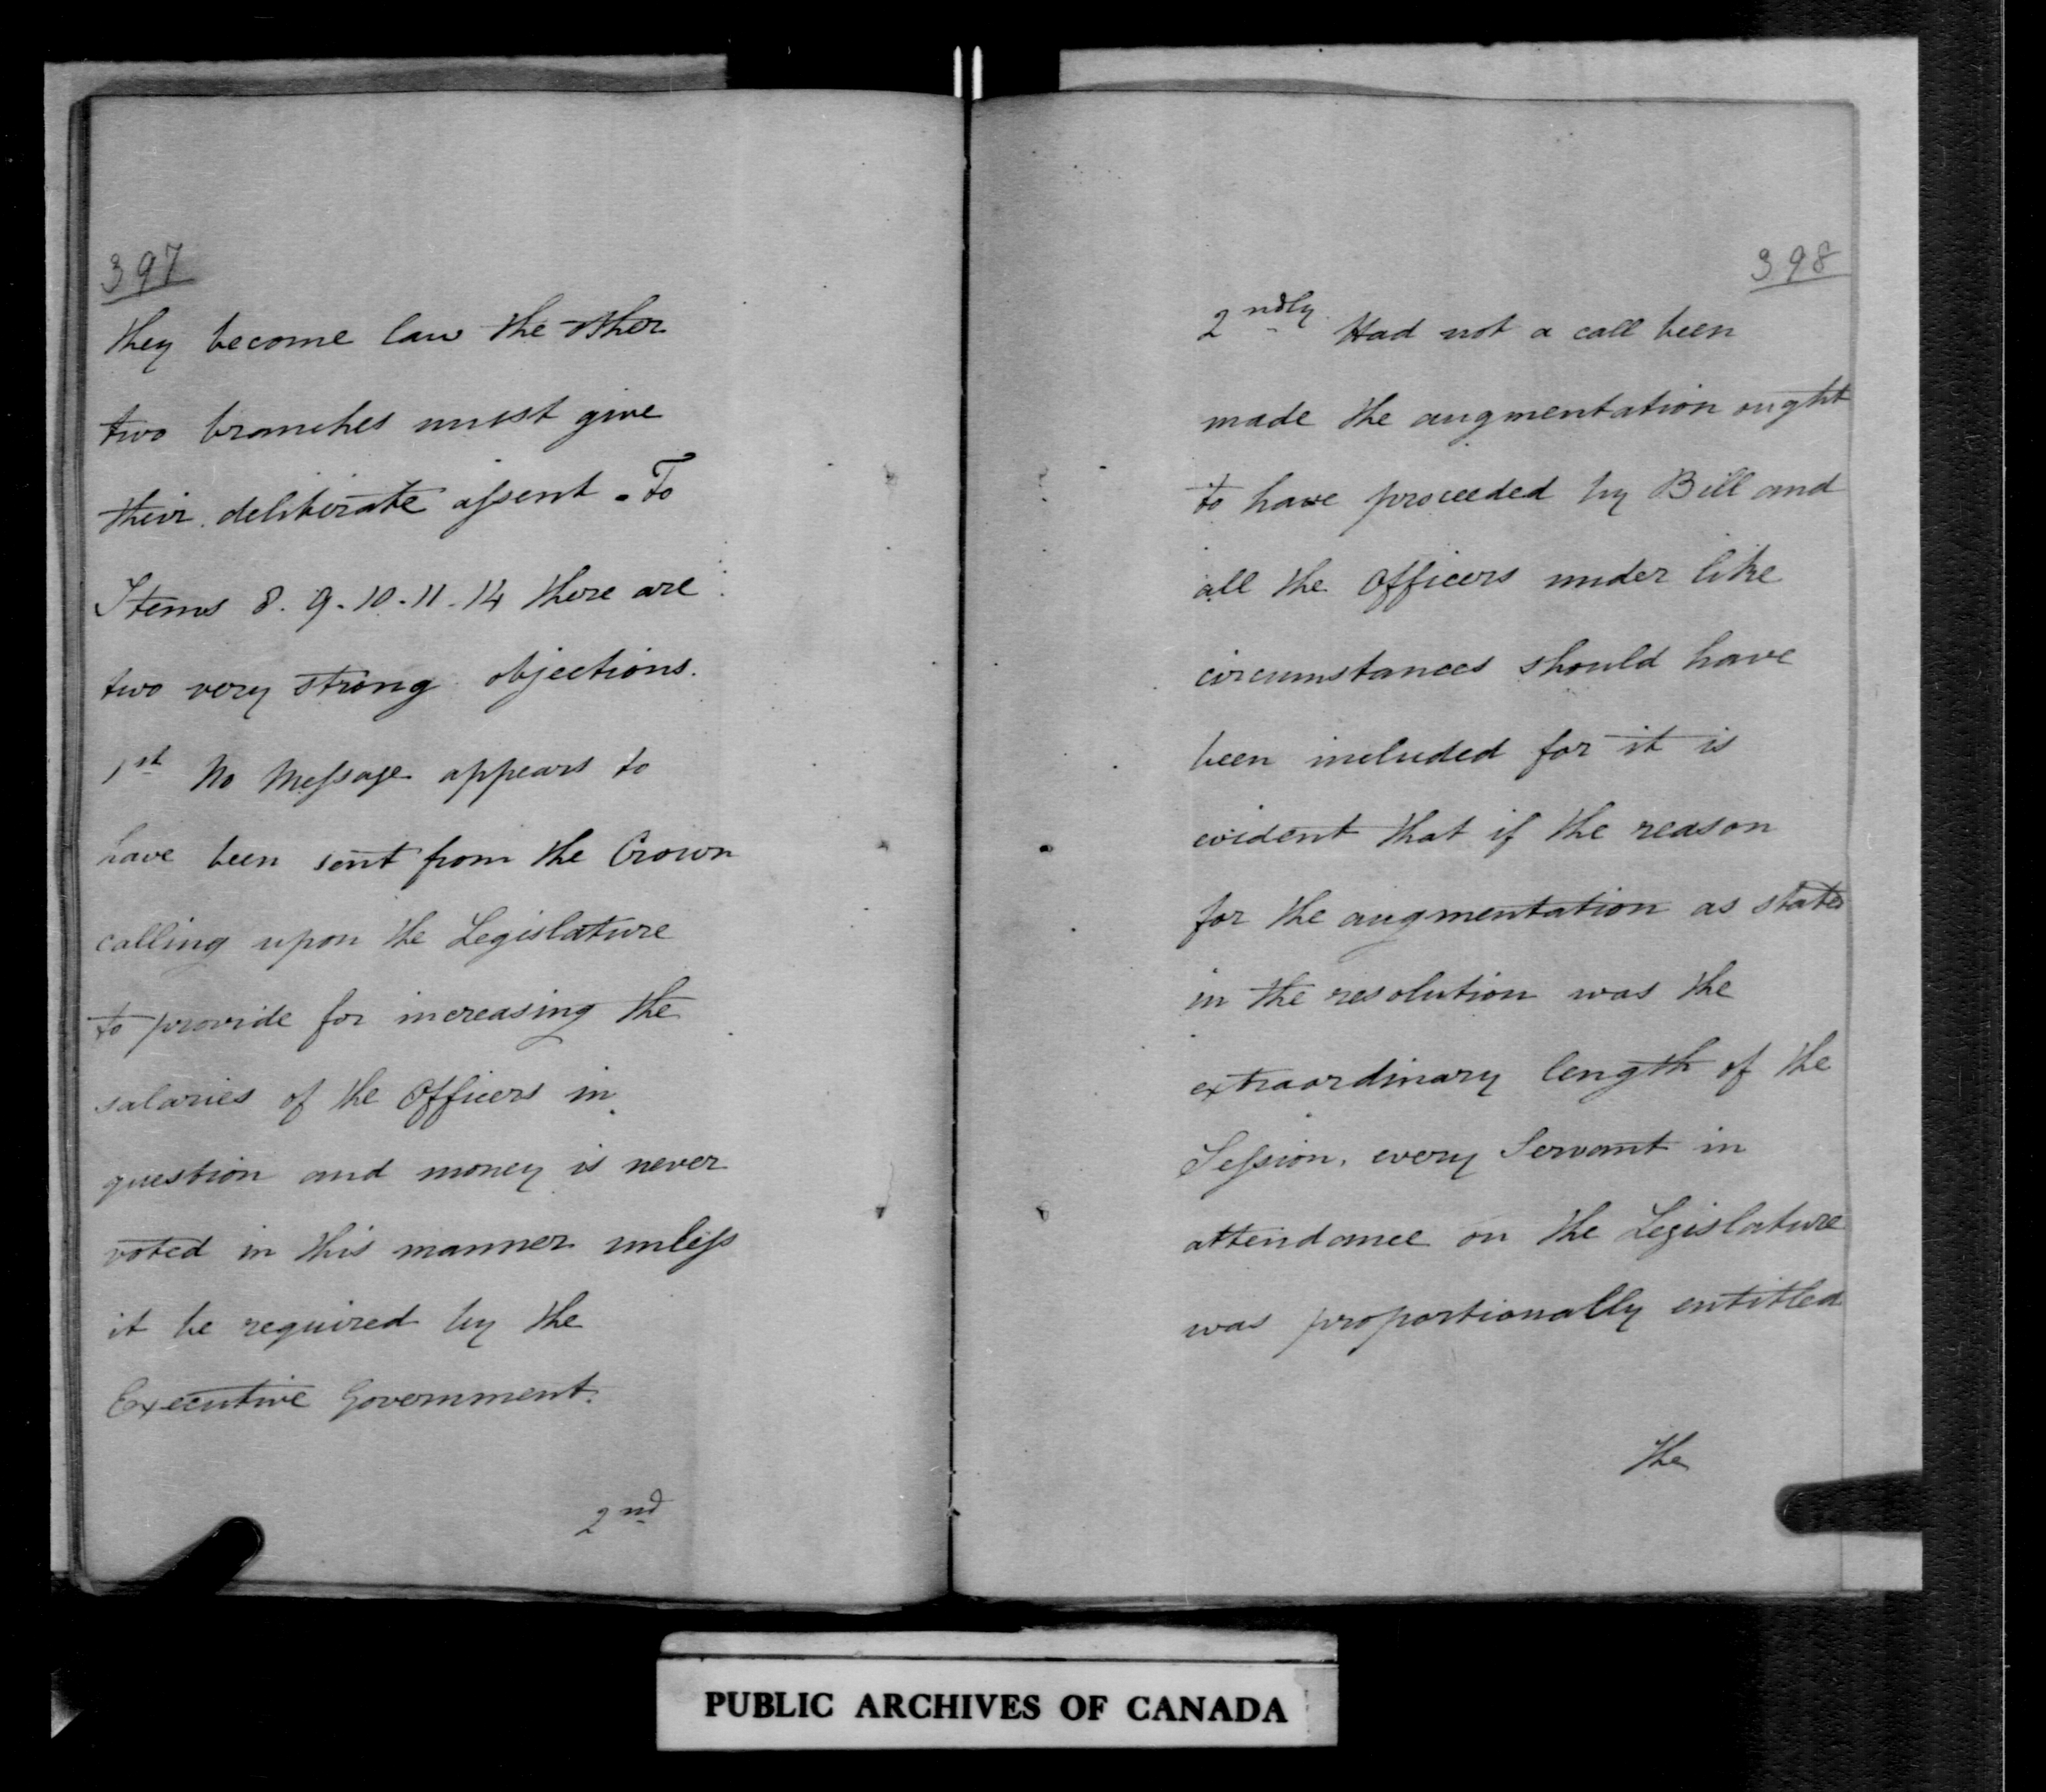 397
they become law the other
two branches must give
their deliberate assent. To
Items 8. 9. 10. 11. 14 there are
two very strong objections.
1st No Message appears to
have been sent from the Crown
calling upon the Legislature
to provide for increasing the
salaries of the Officers in
question and money is never
voted in this manner unless
it be required by the
Executive Government.
2nd
398
2ndly Had not a call been
made the augmentation ought
to have proceeded by Bill and
all the Officers under like
circumstances should have
been included for it is
evident that if the reason
for the augmentation as stated
in the resolution was the
extraordinary length of the
Session, every Servant in
attendance on the Legislature
was proportionally entitled
The
PUBLIC ARCHIVES OF CANADA